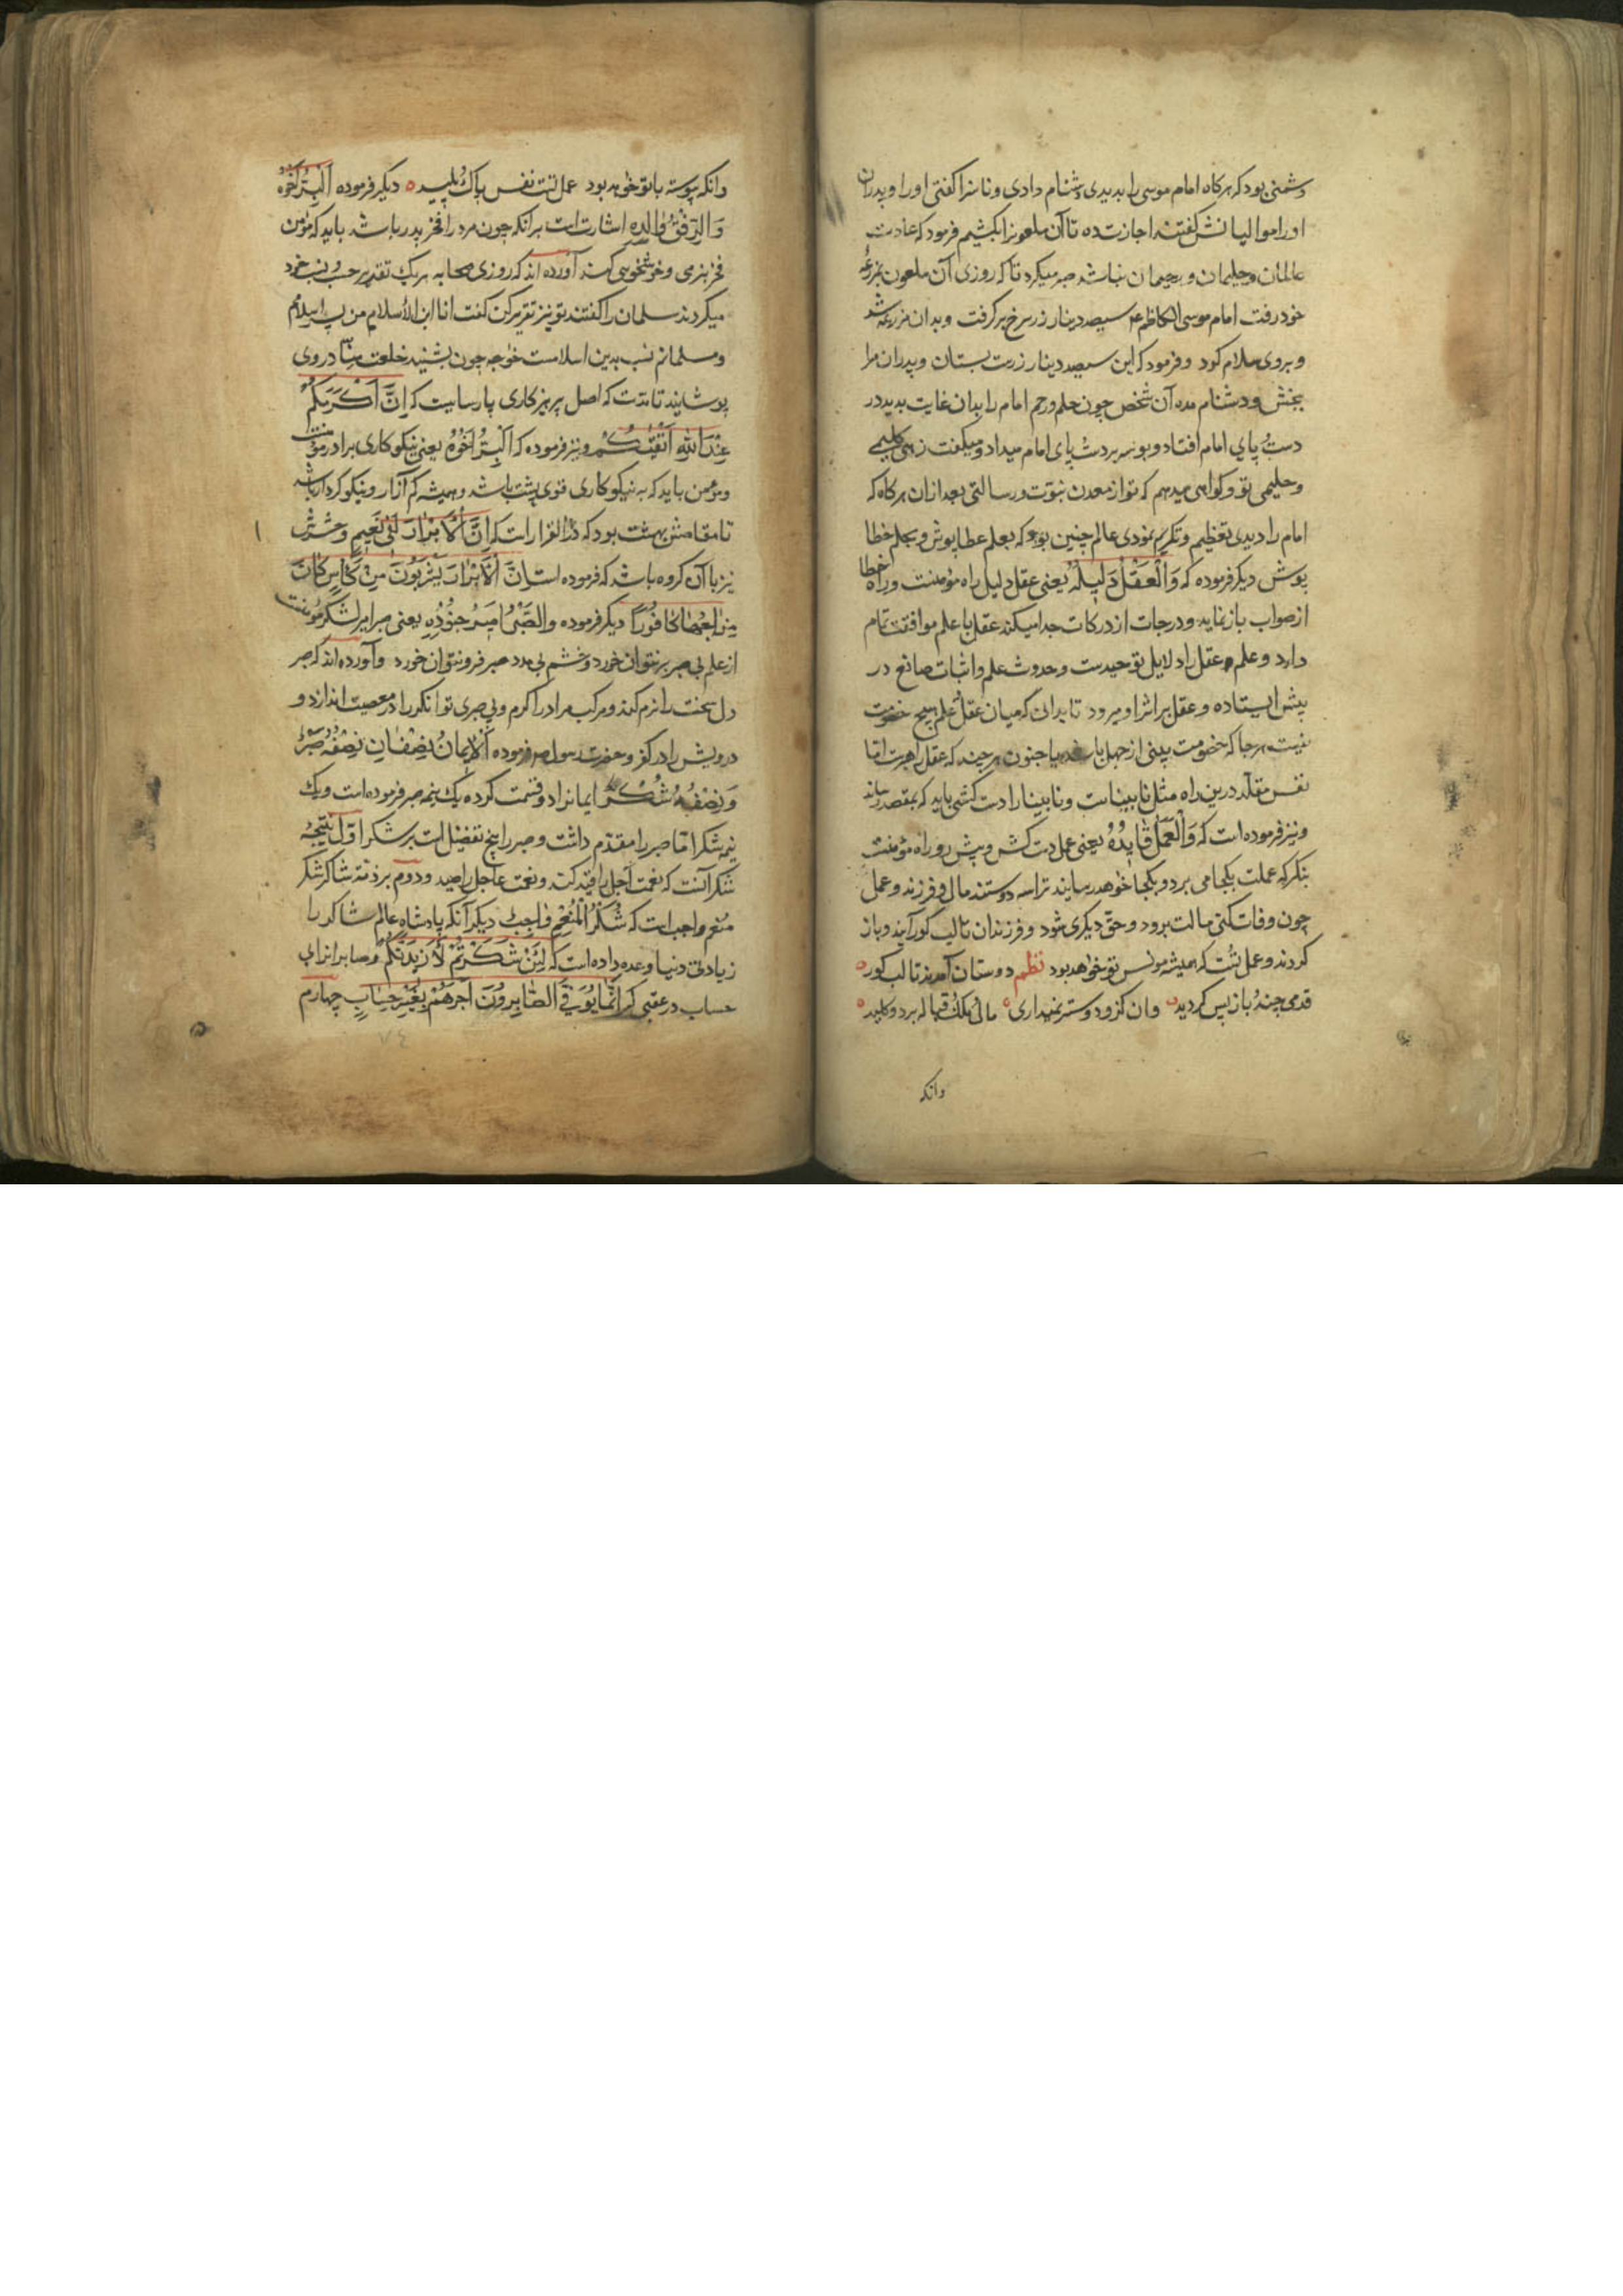 دشمنی بود که هرکاه امام موسی را بدیدی دشنام دادی و ناسزا کفتی او را و پدران
او را موالیانش کفتند اجازت ده تا آن ملعونرا بکشیم فرمود که عادت
عالمان و حلیمان و رحیمان نباشد صبر میکرد تا که روزی آن ملعون بمزرعهٔ
خود رفت امام موسی الکاظم ع سیصد دینار زر سرخ برکرفت و بدان مزرعه شد
و بروی سلام کرد و فرمود که این سیصد دینار زرت بستان و پدران مرا
ببخش و دشنام مده آن شخص چون حلم و رحم امام را بدان غایت بدید در
دست و پای امام افتاد و بوسه بر دست و پای امام میداد و میکفت زهی کلیمی
و حلیمی تو و کواهی میدهم که تو از معدن نبوّت و رسالتی بعد از ان هرکاه که
امام را دیدی تعظیم و تکریم نمودی عالم چنین بود که بعلم عطا پوش و بحلم خطا
پوش دیکر فرموده که وَالْعَقْلُ دَلِیلُهُ یعنی عقل دلیل راه مؤمنست و راه خطا
از صواب باز نماید و درجات از درکات جدا میکند عقل با علم موافقت تمام
دارد و علم عقل را دلایل توحیدست و حدوث علم و اثبات صانع در
پیش ایستاده و عقل بر اثر او میرود تا بدانی که میان عقل و علم هیچ خصومت
نیست هرجا که خصومت بینی از جهل باشد یا جنون هرچند که عقل راهبرست امّا
نفس مقلّد درین راه مثل نابیناست و نابینا را دست کشی باید که بمقصد رساند
و نیز فرموده است که وَالْعَمَلُ قَایِدُهُ یعنی عمل دست کش و پیش رو راه مؤمنست
بنکر که عملت بکجا می برد و بکجا خواهد رسانید ترا سه دوستند مال و فرزند و عمل
چون وفات کنی مالت برود و حقّ دیکری شود و فرزندان تا لب کور آیند و باز
کردند و عمل تست که همیشه مونس تو خواهد بود نظم دوستان آمدند تا لب کور
قدمی چند و باز پس کردید وان کزو دوستر نمیداری مال و ملک و قباله برد و کلید
وانکه
وانکه پیوسته با تو خواهد بود عمل تست نفس پاک و پلید دیکر فرموده اَلْبِرُّ اَخُوهُ
وَالرِّفْقُ وَالِدُهُ اشارت است برانکه چون مرد را فخر بپدر باشد باید که مؤمن
فخر بنرمی و خوشخویی کند آورده اند که روزی صحابه هر یک تقریر حسب و نسب خود
میکردند سلمان را کفتند تو نیز تقریر کن کفت انا ابن الاسلام من پسر اسلامم
و مسلمانم نسب بدین اسلامست خواجه چون بشنید خلعت منّا در وی
پوشانید تا بدانست که اصل پرهیزکاری پارسایست که اِنَّ اَکْرَمَکُمْ
عِنْدَ اللهِ اَتْقٰیکُمْ و نیز فرموده که اَلْبِرُّ اَخُوهُ یعنی نیکوکاری برادر مؤمنست
و مؤمن باید که به نیکوکاری قوی پشت باشد و همیشه کم آزار و نیکو کردار باشد
تا مقامش بهشت بود که دار القرارست که اِنَّ الْاَبْرَارَ لَفِی نَعِیمٍ و حشرش
نیز با آن کروه باشد که فرموده است اِنَّ الْاَبْرَارَ یَشْرَبُونَ مِنْ کَاْسٍ کَانَ
مِزَاجُهَا کَافُورًا دیکر فرموده وَالصَّبْرُ اَمِیرُ جُنُودِهِ یعنی صبر امیر لشکر مؤمنست
از علم بی صبر بر نتوان خورد و خشم بی مدد صبر فرو نتوان خورد و آورده اند که صبر
دل سخت را نرم کند و مرکب مراد را کرم و بی صبری توانکر را در معصیت اندازد و
درویش را در کفر و حضرت رسول ص فرموده اَلْاِیمَانُ نِصْفَانِ نِصْفُهُ صَبْرٌ
وَ نِصْفُهُ شُکْرٌ ایمانرا دو قسمت کرده یک نیمه صبر فرموده است و یک
نیمه شکر امّا صبر را مقدّم داشت و صبر را پنج تفضیل است بر شکر اوّل نتیجهٔ
شکر آنست که نعمت آجل را قید کند و نعمت عاجل را صید و دوم بر ذمّه شاکر شکر
منعم واجب است که شُکْرُ الْمُنْعِمِ وَاجِبٌ دیکر آنکه پادشاه عالم شاکر را
زیادتی دنیا وعده داده است که لَئِنْ شَکَرْتُمْ لَاَزِیدَنَّکُمْ و صابر را
حساب در عقبی که اِنَّمَا یُوَفَّی الصَّابِرُونَ اَجْرَهُمْ بِغَیْرِ حِسَابٍ چهارم
٧٤